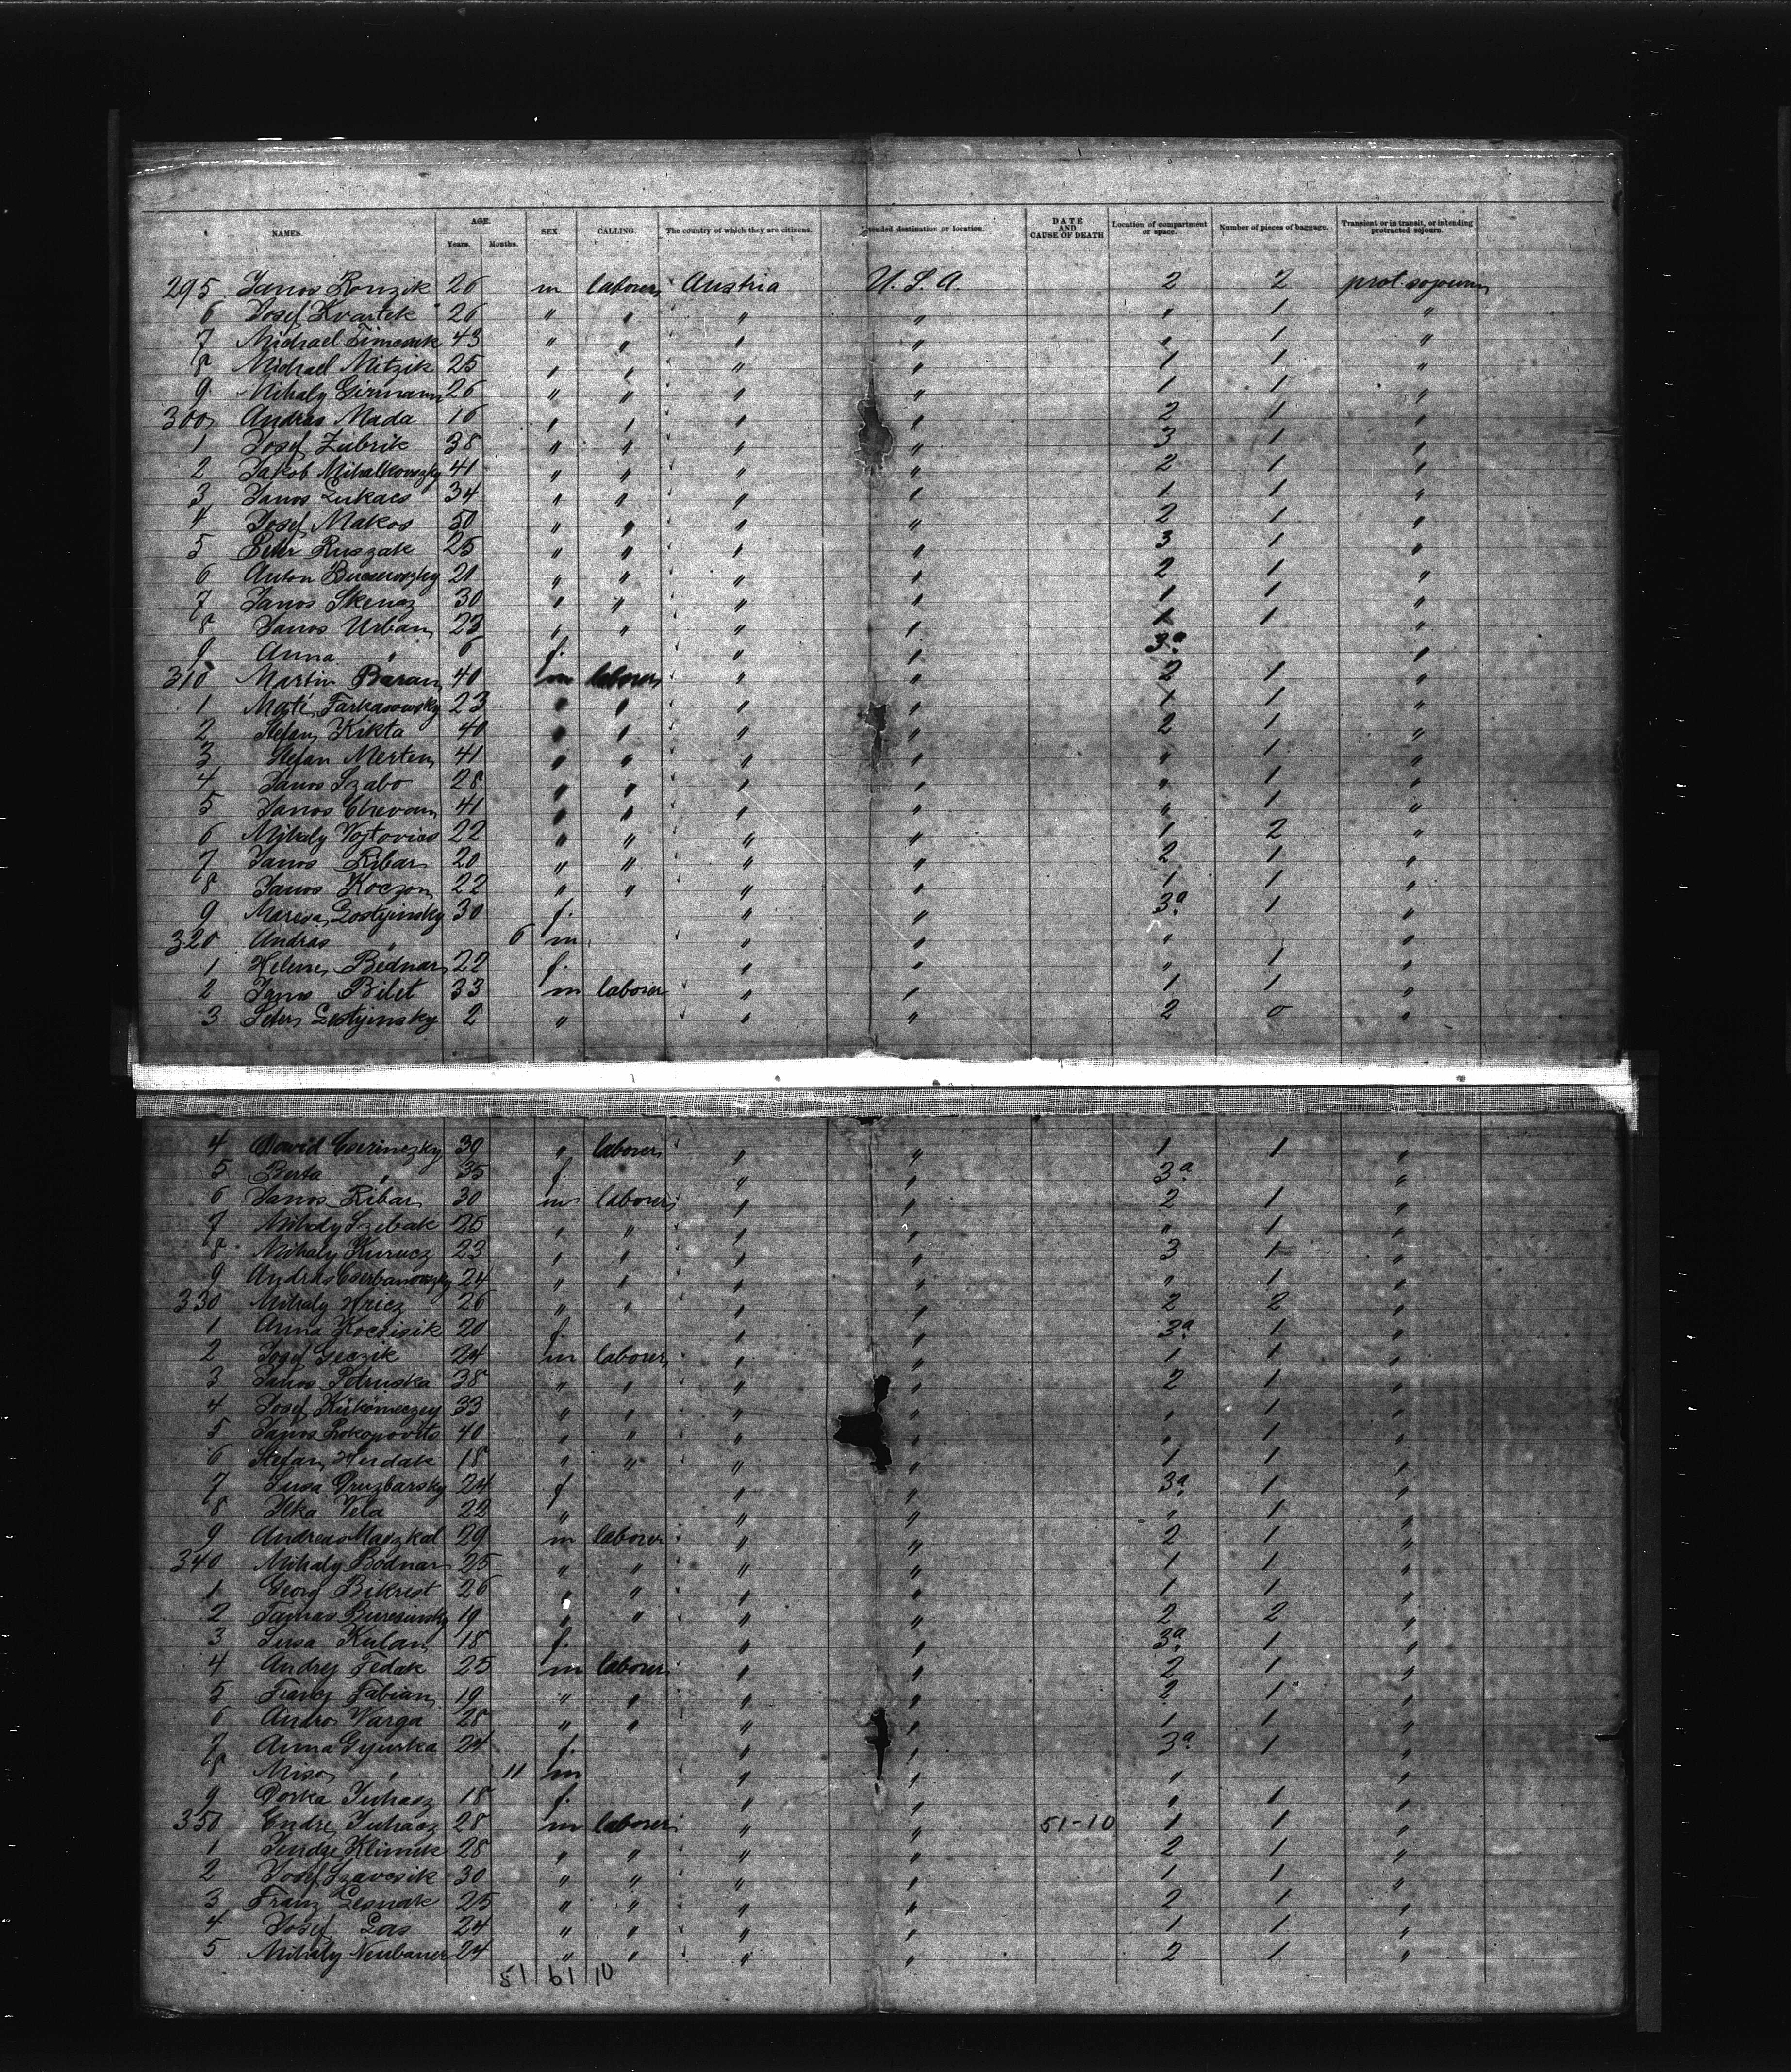 NAMES. AGE. Years. Months. SEX. CALLING. The country of which they are citizens. ended destination or location. DATE AND CAUSE OF DEATH Location of compartment or space. Number of pieces of baggage. Transient or in transit, or intending protracted sojourn.
295 Janos Ronzik 26 m laborer Austria U.S.A. 2 2 prot. sojourn
6 Josef Kvartek 26 " " " " " 1 "
7 Michael 43 " " " " " 1 "
8 Michael Mitzik 25 " " " " 1 1 "
9 Mihaly Girmann 26 " " " " 1 1 "
300 Andras Mada 16 " " " " 2 1 "
1 Josef Zubrik 38 " " " " 3 1 "
2 Jakob Mihalkovszky 41 " " " " 2 1 "
3 Janos Lukacs 34 " " " " 1 1 "
4 Josef Makos 50 " " " " 2 1 "
5 Peter Ruszak 25 " " " " 3 1 "
6 Anton 21 " " " " 2 1 "
7 Janos Skencz 30 " " " " 1 1 "
8 Janos Urban 23 " " " " 1 1 "
9 Anna " 6 f. " " 3a "
310 Martin Baran 40 m laborer " " 2 1 "
1 Mate Farkasowsky 23 " " " " 1 1 "
2 Stefan Kikta 40 " " " " 2 1 "
3 Stefan Merten 41 " " " " " 1 "
4 Janos Szabo 28 " " " " " 1 "
5 Janos 41 " " " " " 1 "
6 Mihaly Vojtovics 22 " " " " 1 2 "
7 Janos Ribar 20 " " " " 2 1 "
8 Janos Koczon 22 " " " " 1 1 "
9 Maresa Gostyinsky 30 f. " " 3a 1 "
320 Andras " 6 m " " " "
1 Helene Bednar 22 f. " " " 1 "
2 Janos Bilet 33 m laborer " " 1 1 "
3 Peter Gostyinsky 2 " " " 2 0 "
4 David Cserinczky 39 " laborer " " 1 1 "
5 Berta " 35 f. " " 3a "
6 Janos Ribar 30 m laborer " " 2 1 "
7 Mihaly Szebak 25 " " " " " 1 "
8 Mihaly Kurucz 23 " " " " 3 1 "
9 Andras Cserbanowszky 24 " " " " " 1 "
330 Mihaly Hricz 26 " " " " 2 2 "
1 Anna Kocsisik 20 f. " " 3a 1 "
2 Josef Geczik 24 m laborer " " 1 1 "
3 Janos Petruska 38 " " " " 2 1 "
4 Josef 33 " " " " " 1 "
5 Janos Prokopovits 40 " " " " " 1 "
6 Stefan Hudak 18 " " " " 1 1 "
7 Susa Druzbarsky 24 f " " 3a 1 "
8 Ilka Vela 22 " " " " 1 "
9 Andreas 29 m laborer " " 2 1 "
340 Mihaly Bodnar 25 " " " " 1 1 "
1 Georg Bikrest 26 " " " " 1 1 "
2 Tamas 19 " " " " 2 2 "
3 Susa Kulan 18 f. " " 3a 1 "
4 Andrej Fedak 25 m laborer " " 2 1 "
5 Fabian 19 " " " " 2 1 "
6 Andro Varga 28 " " " " 1 1 "
7 Anna Gyurka 24 f. " " 3a 1 "
8 " 11 m " " " "
9 Dorka Juhasz 18 f. " " " 1 "
350 Endre Juhasz 28 m laborer " " 51-10 1 1 "
1 Klimek 28 " " " " 2 1 "
2 Josef Szavcsik 30 " " " " 1 1 "
3 Franz Lesnak 25 " " " " 2 1 "
4 Josef Las 24 " " " " 1 1 "
5 Mihaly Neubauer 24 " " " " 2 1 "
51 61 10